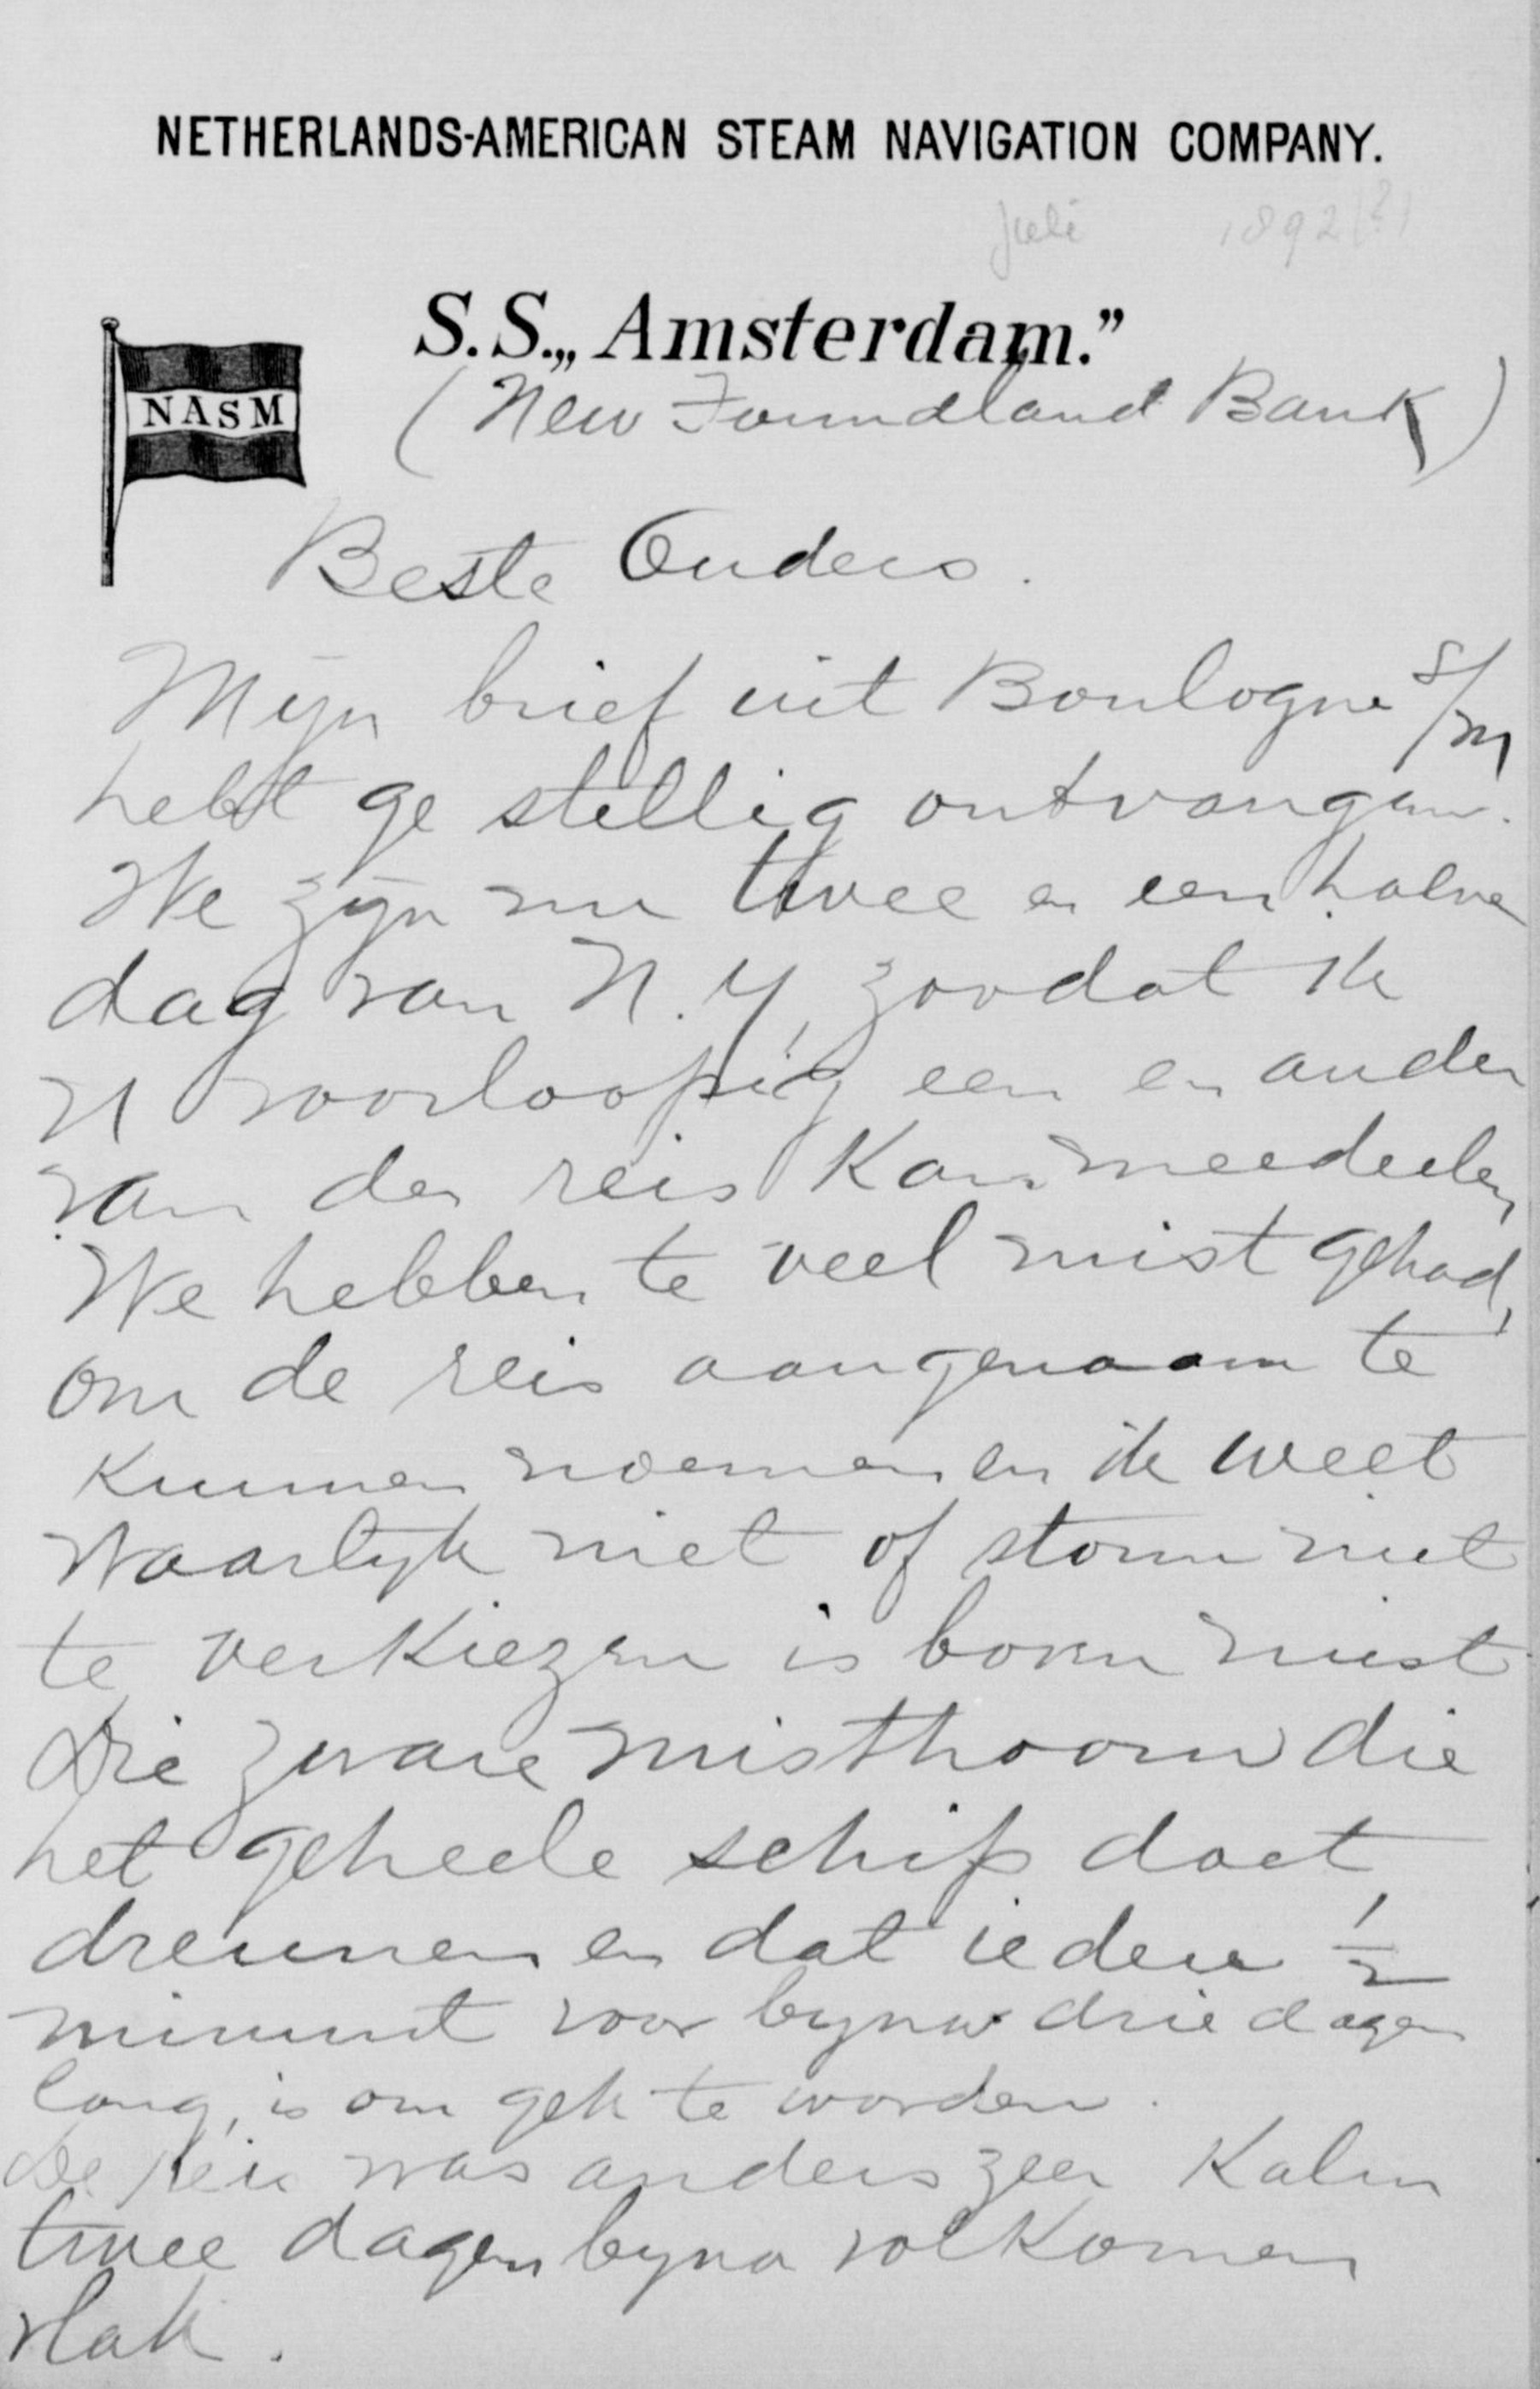 NETHERLANDS-AMERICAN STEAM NAVIGATION COMPANY.
Juli 1892(?)
S.S. „Amsterdam.”
NASM
(New Foundland Bank)
Beste Ouders.
Mijn brief uit Boulogne s/m
hebt ge stellig ontvangen.
We zijn nu twee en een halve
dag van N.Y, zoodat ik
U voorloopig een en ander
van de reis kan meedeelen,
We hebben te veel mist gehad,
om de reis aangenaam te
kunnen noemen en ik weet
waarlijk niet of storm niet
te verkiezen is boven mist
Die zware misthoorn die
het geheele schip doet
dreunen en dat iedere ½
minuut voor bijna drie dagen
lang, is om gek te worden.
De reis was anders zeer kalm
twee dagen bijna volkomen
vlak.